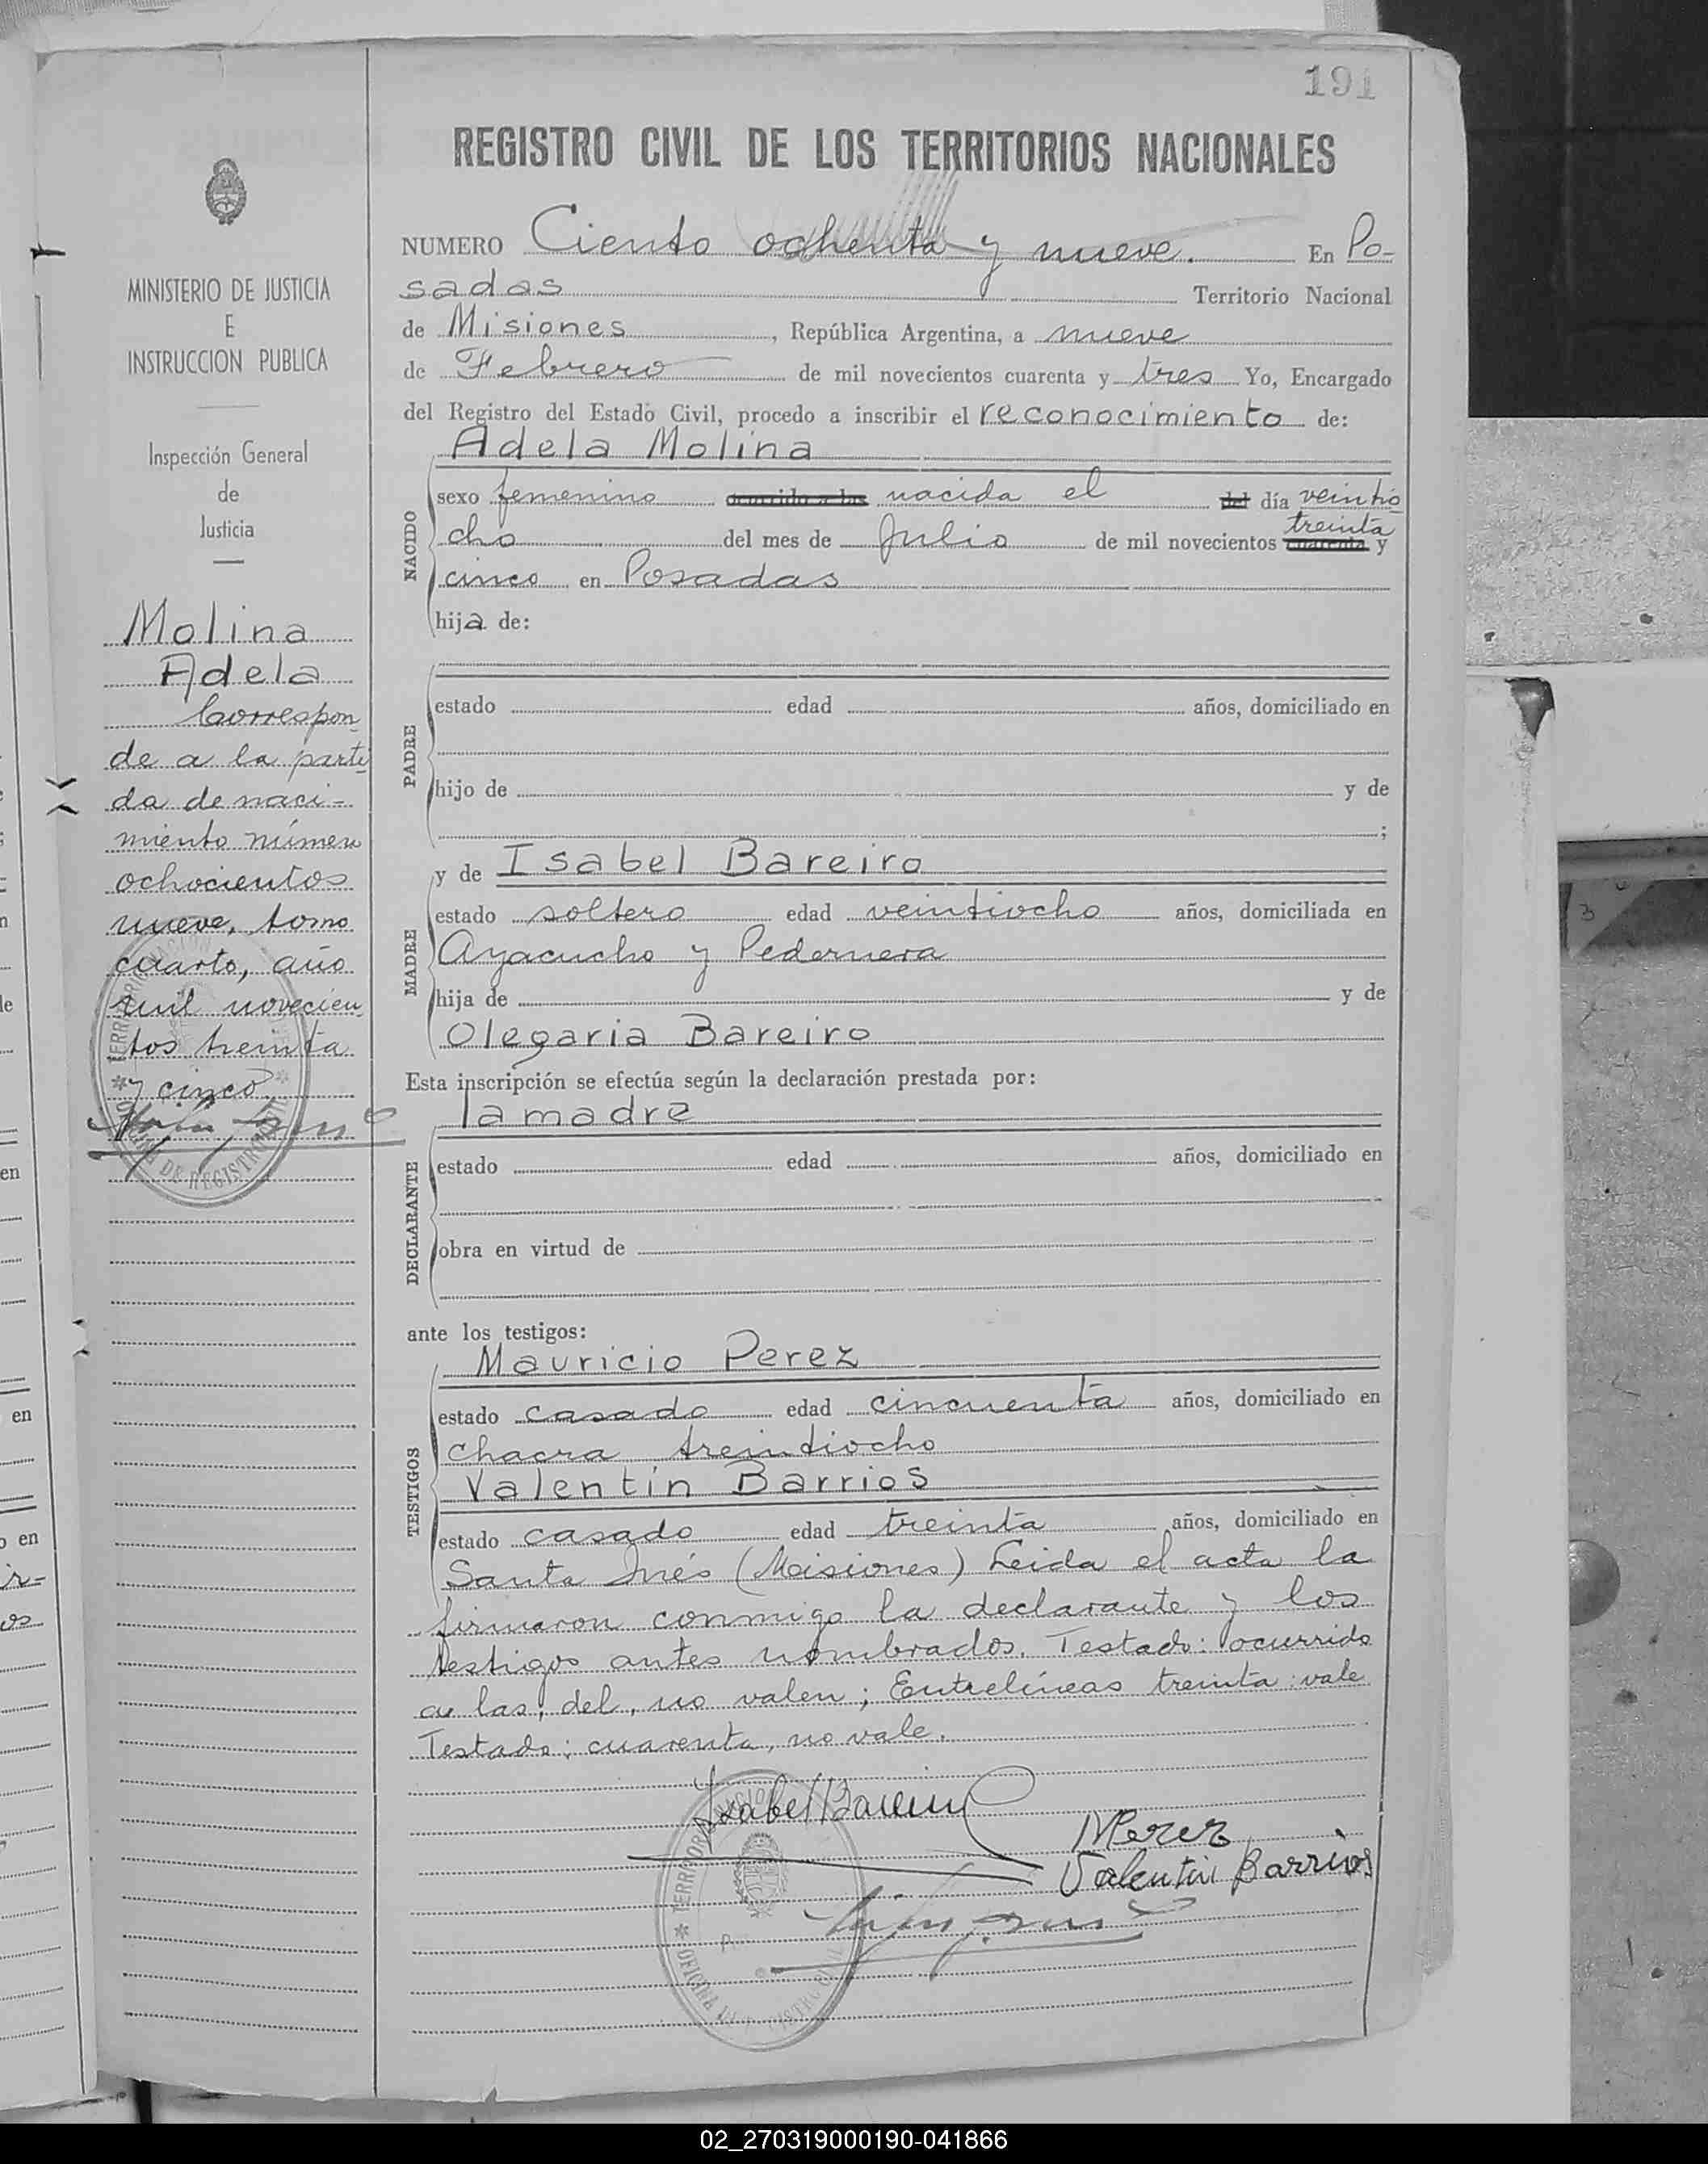 191
REGISTRO CIVIL DE LOS TERRITORIOS NACIONALES
MINISTERIO DE JUSTICIA
E
INSTRUCCION PUBLICA
Inspección General
de
Justicia
Molina
Adela
Correspon
de a la parti
da de naci-
miento número
ochocientos
nueve, tomo
cuarto, año
mil novecien
tos treinta
y cinco
NUMERO Ciento ochenta y nueve. En Po-
sadas Territorio Nacional
de Misiones, República Argentina, a nueve
de Febrero de mil novecientos cuarenta y tres Yo, Encargado
del Registro del Estado Civil, procedo a inscribir el reconocimiento de:
Adela Molina
NACIDO
sexo femenino ocurrido a las nacida el del día veintio
cho del mes de Julio de mil novecientos cuarenta treinta y
cinco en Posadas
hija de:
PADRE
estado edad años, domiciliado en
hijo de y de
;
y de Isabel Bareiro
MADRE
estado soltero edad veintiocho años, domiciliada en
Ayacucho y Pedernera
hija de y de
Olegaria Bareiro
Esta inscripción se efectúa según la declaración prestada por:
la madre
DECLARANTE
estado edad años, domiciliado en
obra en virtud de
ante los testigos:
Mauricio Perez
TESTIGOS
estado casado edad cincuenta años, domiciliado en
chacra treintiocho
Valentín Barrios
estado casado edad treinta años, domiciliado en
Santa Inés (Misiones) Leida el acta la
firmaron conmigo la declarante y los
testigos antes nombrados. Testado: ocurrido
a las, del, no valen; Entrelíneas treinta: vale
Testado: cuarenta, no vale.
Isabel Bareiro
MPerez
Valentin Barrios
02_270319000190-041866